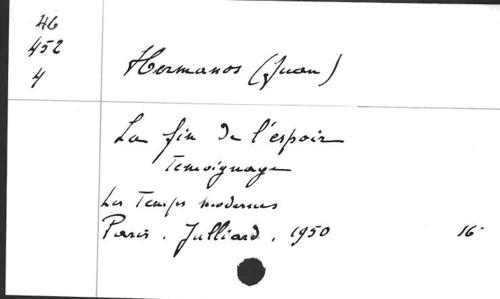 46
452
4
Hermanos (Juan)
La fin de l'espoir
Temoignage
Les Temps modernes
Paris. Julliard. 1950 16°